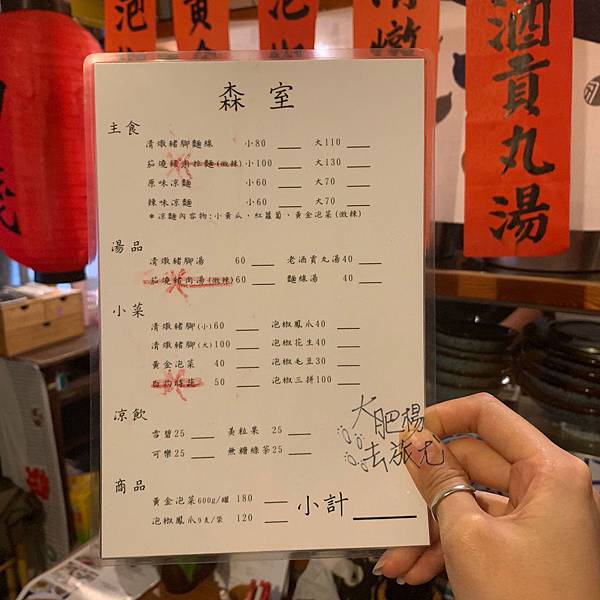 酒貢丸湯
森室
主食
清燉豬腳麵線 小80 大110
茄燒豬肉拉麵(微辣) 小100 大130
原味涼麵 小60 大70
辣味涼麵 小60 大70
*涼麵內容物:小黃瓜、紅蘿蔔、黃金泡菜(微辣)
湯品
清燉豬腳湯 60 老酒貢丸湯40
茄燒豬肉湯(微辣)60 麵線湯 40
小菜
清燉豬腳(小)60 泡椒鳳爪40
清燉豬腳(大)100 泡椒花生40
黃金泡菜 40 泡椒毛豆30
50 泡椒三拼100
涼飲
雪碧25 美粒果 25
可樂25 無糖綠茶25
商品
黃金泡菜600g/罐 180
泡椒鳳爪9支/袋 120
小計
大肥楊
去旅尤